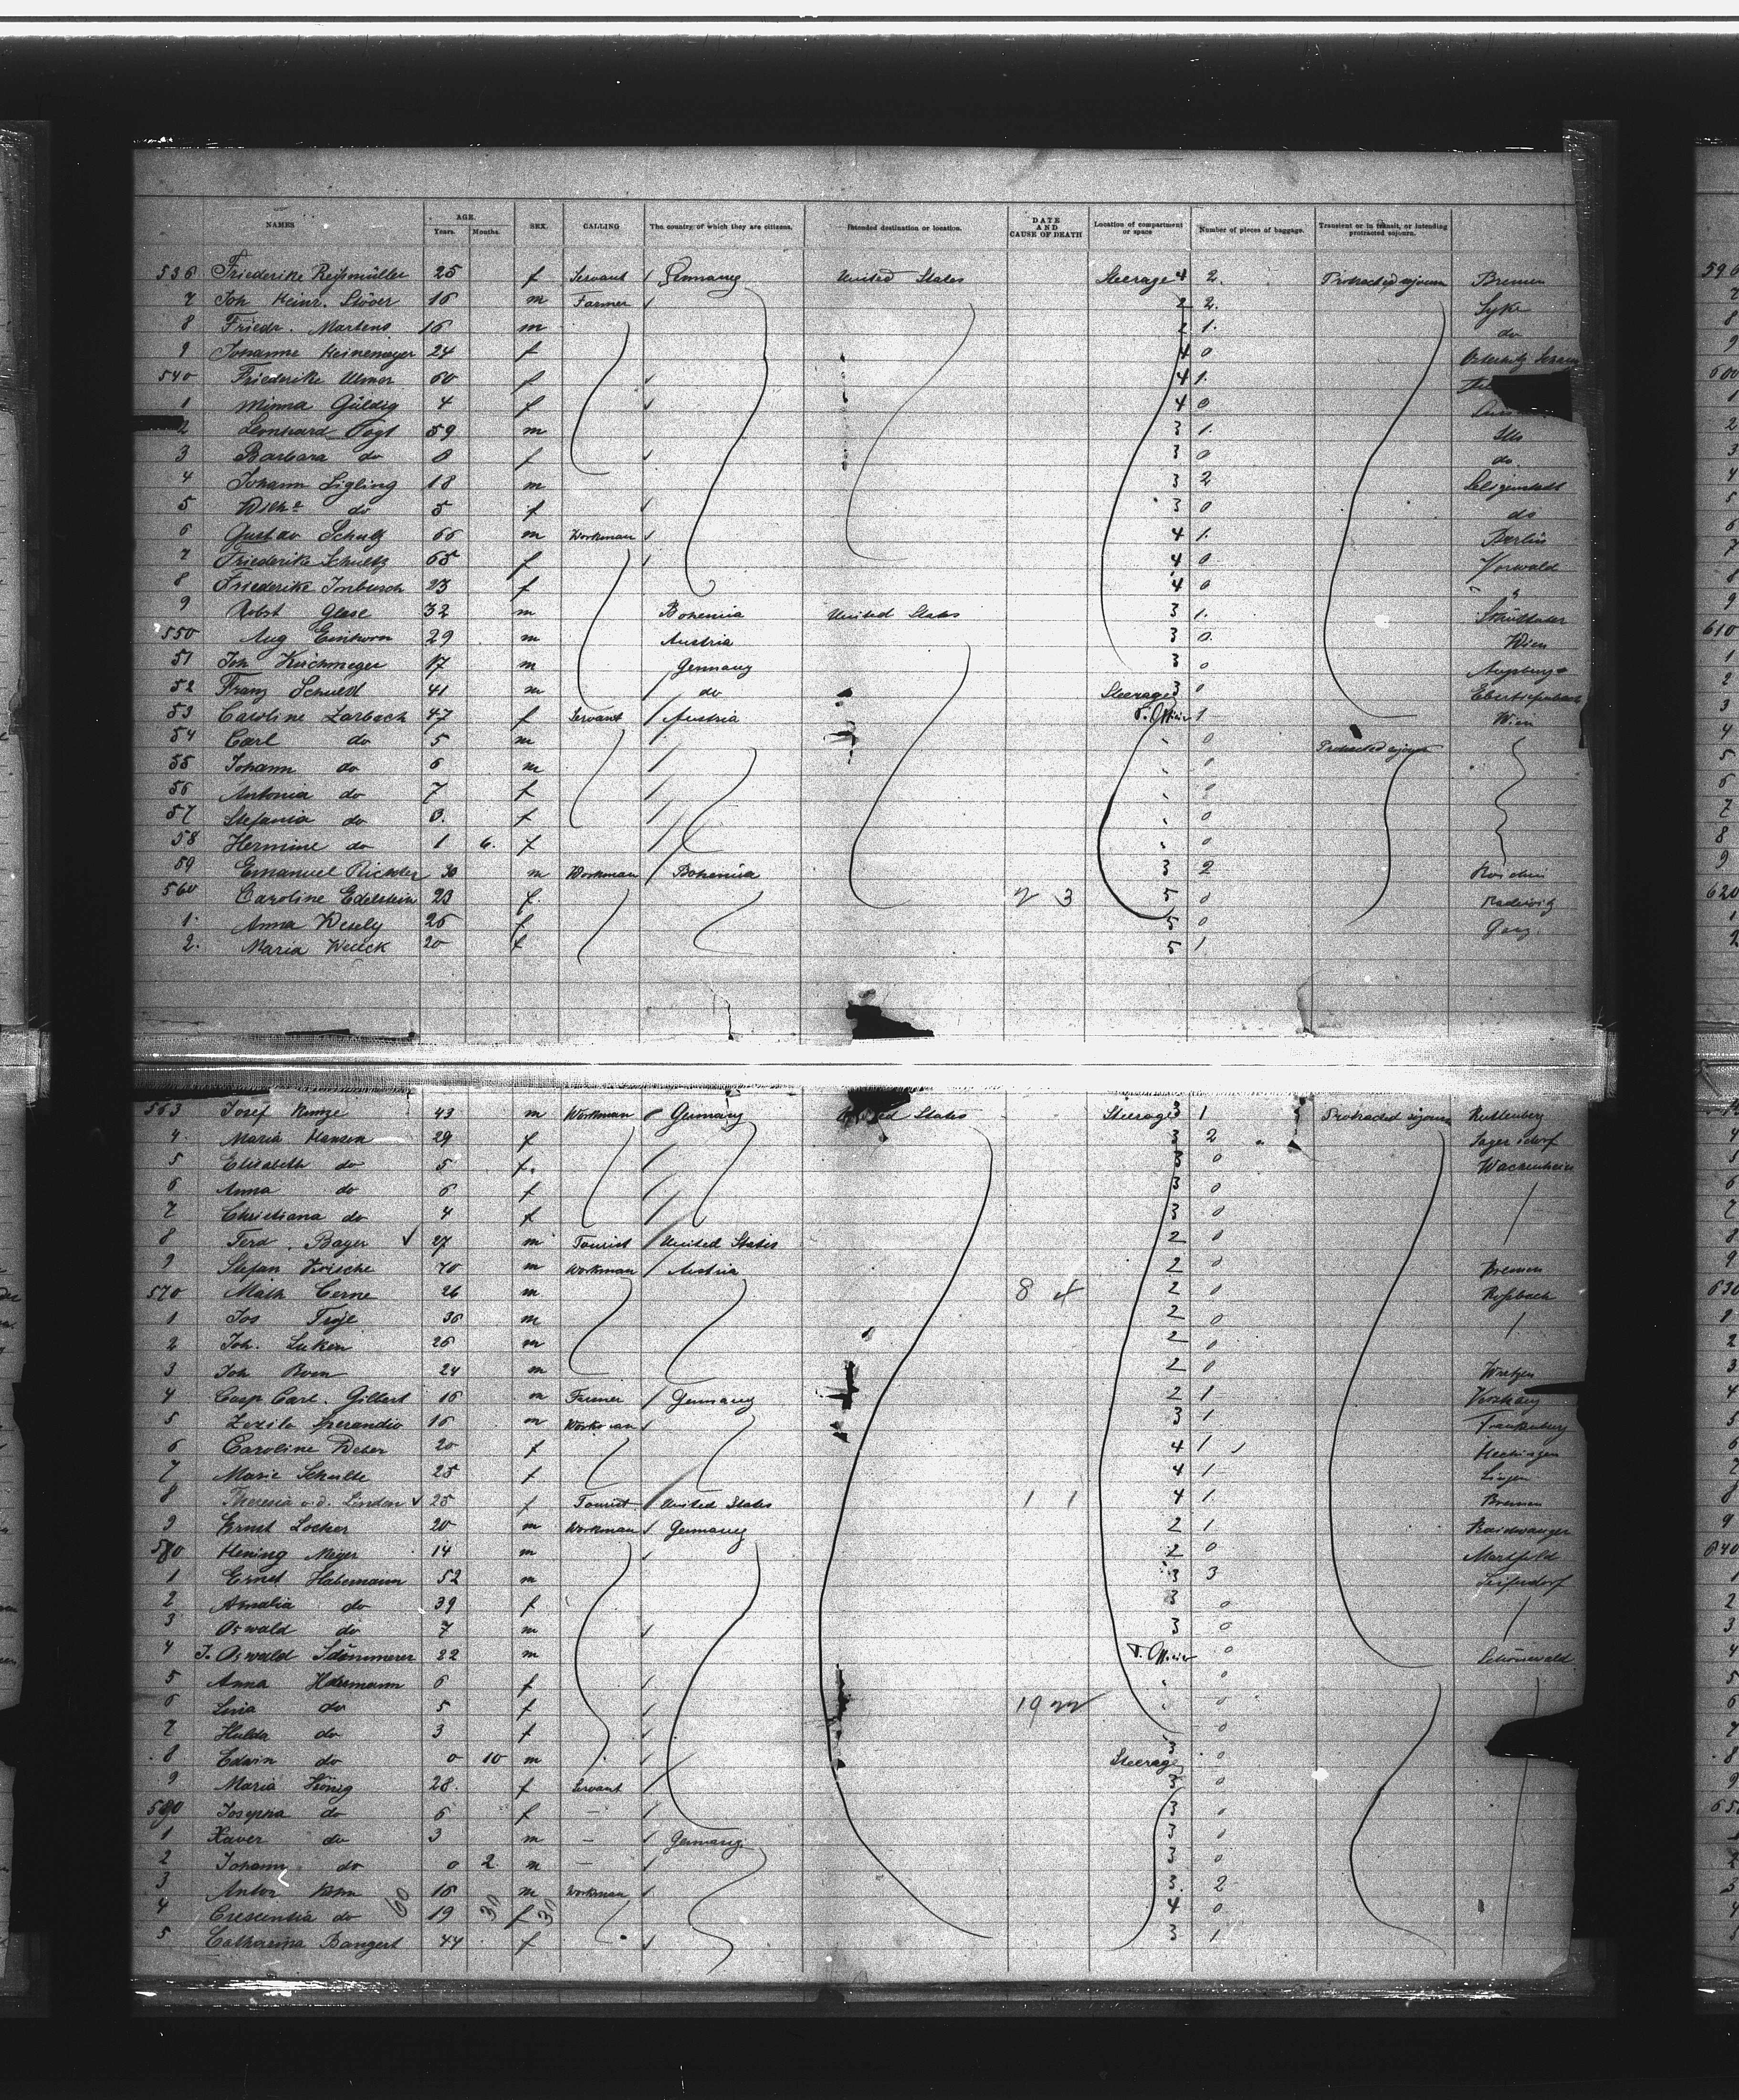 NAMES AGE. Years. Months. SEX. CALLING The country of which they are citizens. Intended destination or location. DATE AND CAUSE OF DEATH Location of compartment or space Number of pieces of baggage. Transient or in transit, or intending protracted sojourn.
536 Friederike Reißmüller 25 f Servant Germany United States Steerage 4 2. Protracted sojourn Bremen
7 Joh Heinr. Stöver 16 m Farmer 2 2. Syke
8 Friedr. Martens 16 m 2 1. do
9 Johanne Heinemeyer 24 f 4 0
540 Friederike Ulmer 60 f 4 1.
1 Minna Güldig 4 f 4 0
2 Leonhard Vogt 59 m 3 1.
3 Barbara do 8 f 3 0 do
4 Johann Ligling 18 m 3 2
5 do 5 f 3 0 do
6 Gustav Schulz 66 m Workman 4 1. Berlin
7 Friederike Schultz 65 f 4 0 Vorwald
8 Friederike Imbusch 23 f 4 0 "
9 Robt Glase 32 m Bohemia United States 3 1.
550 Aug Einhorn 29 m Austria 3 0. Wien
51 Joh Kirchmeger 17 m Germany 3 0
52 Franz Schuldt 41 m do Steerage 3 0
53 Caroline Zarbach 47 f Servant Austria 1 Wien
54 Carl do 5 m 0 Protracted sojourn
55 Johann do 6 m 0
56 Antonia do 7 f 0
57 Stefania do 8. f 0
58 Hermine do 1 6. f 0
59 Emanuel Richter 30 m Workman Bohemia 3 2
560 Caroline Edelstein 23 f. 2 3 5 0
1. Anna Wesely 26 f 5 0
2. Maria 20 f 5 1.
563 Josef Kunze 43 m Workman Germany United States Steerage 3 1 Protracted sojourn
4. Maria Hansen 29 f 3 2
5 Elisabeth do 5 f. 3 0 Wachenheim
6 Anna do 6 f 3 0
7 Christiana do 4 f 3 0
8 Ferd. Bayer 27 m Tourist United States 2 0
9 Stefan 40 m Workman Austria 2 0 Bremen
570 Math Cerne 26 m 8 4 2 0 Roßbach
1 Jos 36 m 2 0
2 Joh. 26 m 2 0
3 Joh 24 m 2 0
4 Casp Carl. Gilbert 16 m Farmer Germany 2 1
5 Sperandio 16 m Workman 3 1 Frankenberg
6 Caroline Weber 20 f 4 1 Hechingen
7 Marie Schulte 25 f 4 1 Lingen
8 Theresia v. d. Linden 25 f Tourist United States 1 1 4 1. Bremen
9 Ernst Locher 20 m Workman Germany 2 1
580 Hening Meyer 14 m 2 0 Martfeld
1 Ernst Habemann 52 m 3 3 Seifersdorf
2 Amalia do 39 f 3 0
3 Oswald do 7 m 3 0
4 J. Oswald 22 m 0 Schönewald
5 Anna 6 f 0
6 Lina do 5 f 19 22 0
7 Hulda do 3 f 0
8 Edwin do 0 10 m Steerage 3 0
9 Maria König 28. f Servant 3 0
590 Josepha do 6 f — 3 0
1 Xaver do 3 m — Germany 3 0
2 Johann do 0 2 m — 3 0
3 Anton 16 m Workman 3. 2
4 Crescentia do 60 19 30 f 30 4 0
5 Catharina Bangert 44 f 3 1